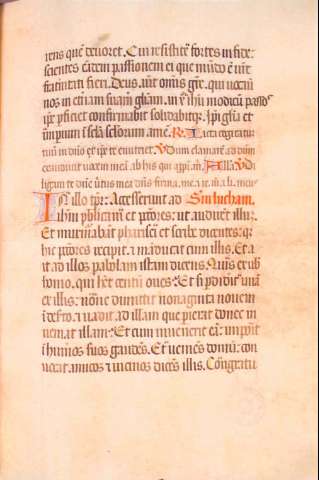 rens que deuoret. Cui resistite fortes in fide:
scientes eadem passionem ei que mundo e ure
fraternitati fieri. Deus aut omis gre. qui uocauit
nos in eternam suam gliam. in xpo ihu modicu passos
ipe perficiet confirmabit solidabitq. Ipi glia et
imperium i scla sclorum ame. R. Iacta cogitatum
tuum in dno et ipe te enutriet. V Dum clamare ad dnm
exaudiuit uocem mea ab his qui apprpin. m. Alla V Di
ligam te dne uirtus mea dns firma. me. i re. m. lu. meu
IN illo tpr: Accesserunt ad Sm lucham.
Ihm publicani et pctores: ut audirent illu.
Et murmurabant pharisei et scribe dicentes: quia
hic pctores recipit. i manducat cum illis. Et a
it ad illos pabolam istam dicens. Quis ex uob
homo. qui het centu oues: Et si pdidit unam
ex illis: none dimittit nonaginta nouem
i deserto. i uadit ad illam que pierat donec in
ueniat illam: Et cum inuenerit ea: imponit
i humeros suos gaudes. Et ueniens domu: con
uocat amicos i uicinos dices illis. Congratu